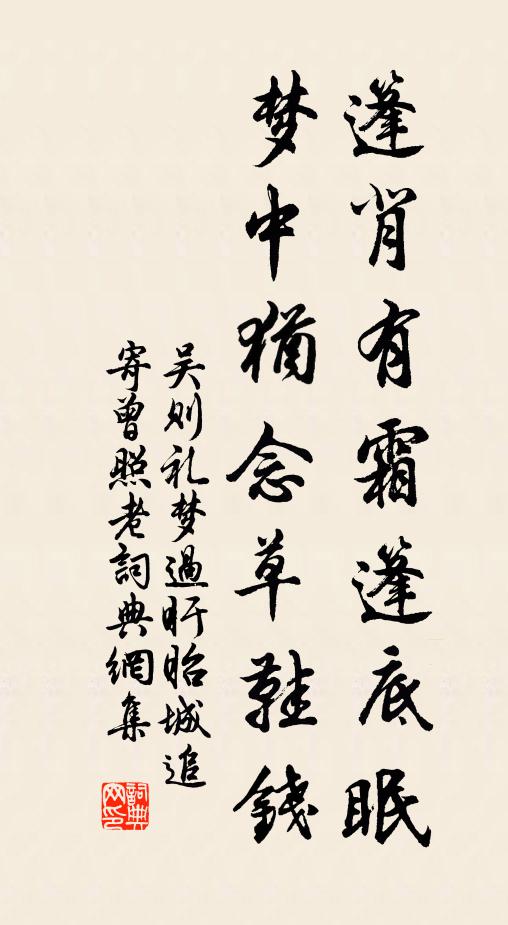 篷背有霜篷底眠
梦中猶念草鞋錢
吴则礼梦過盱眙城追
寄曾照老詞典網集
詞典网印